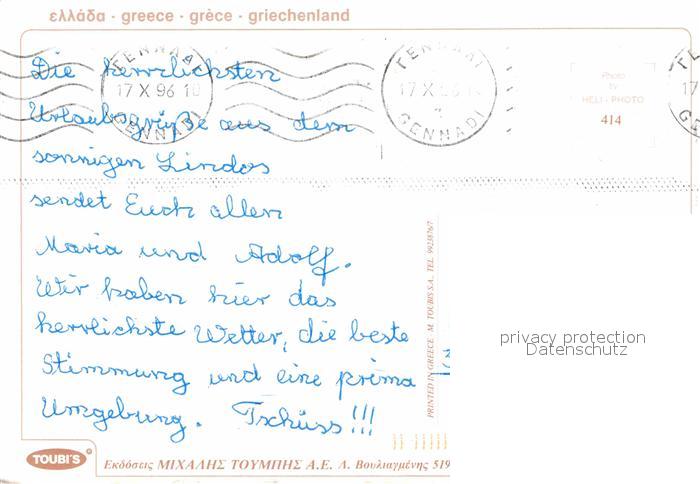 ελλάδα · greece · grèce · griechenland
ΓΕΝΝΑΔΙ
17 X 96 10
GENNADI
ΓΕΝΝΑΔΙ
17 X 96
GENNADI
17
Photo
by
HELI-PHOTO
414
Die herrlichsten
Urlaubsgrüße aus dem
sonnigen Lindos
sendet Euch allen
Maria und Adolf.
Wir haben hier das
herrlichste Wetter, die beste
Stimmung und eine prima
Umgebung. Tschüss!!!
PRINTED IN GREECE M. TOUBIS S.A. TEL. 9923876/7
privacy protection
Datenschutz
TOUBI'S
Εκδόσεις ΜΙΧΑΛΗΣ ΤΟΥΜΠΗΣ Α.Ε. Λ. Βουλιαγμένης 519